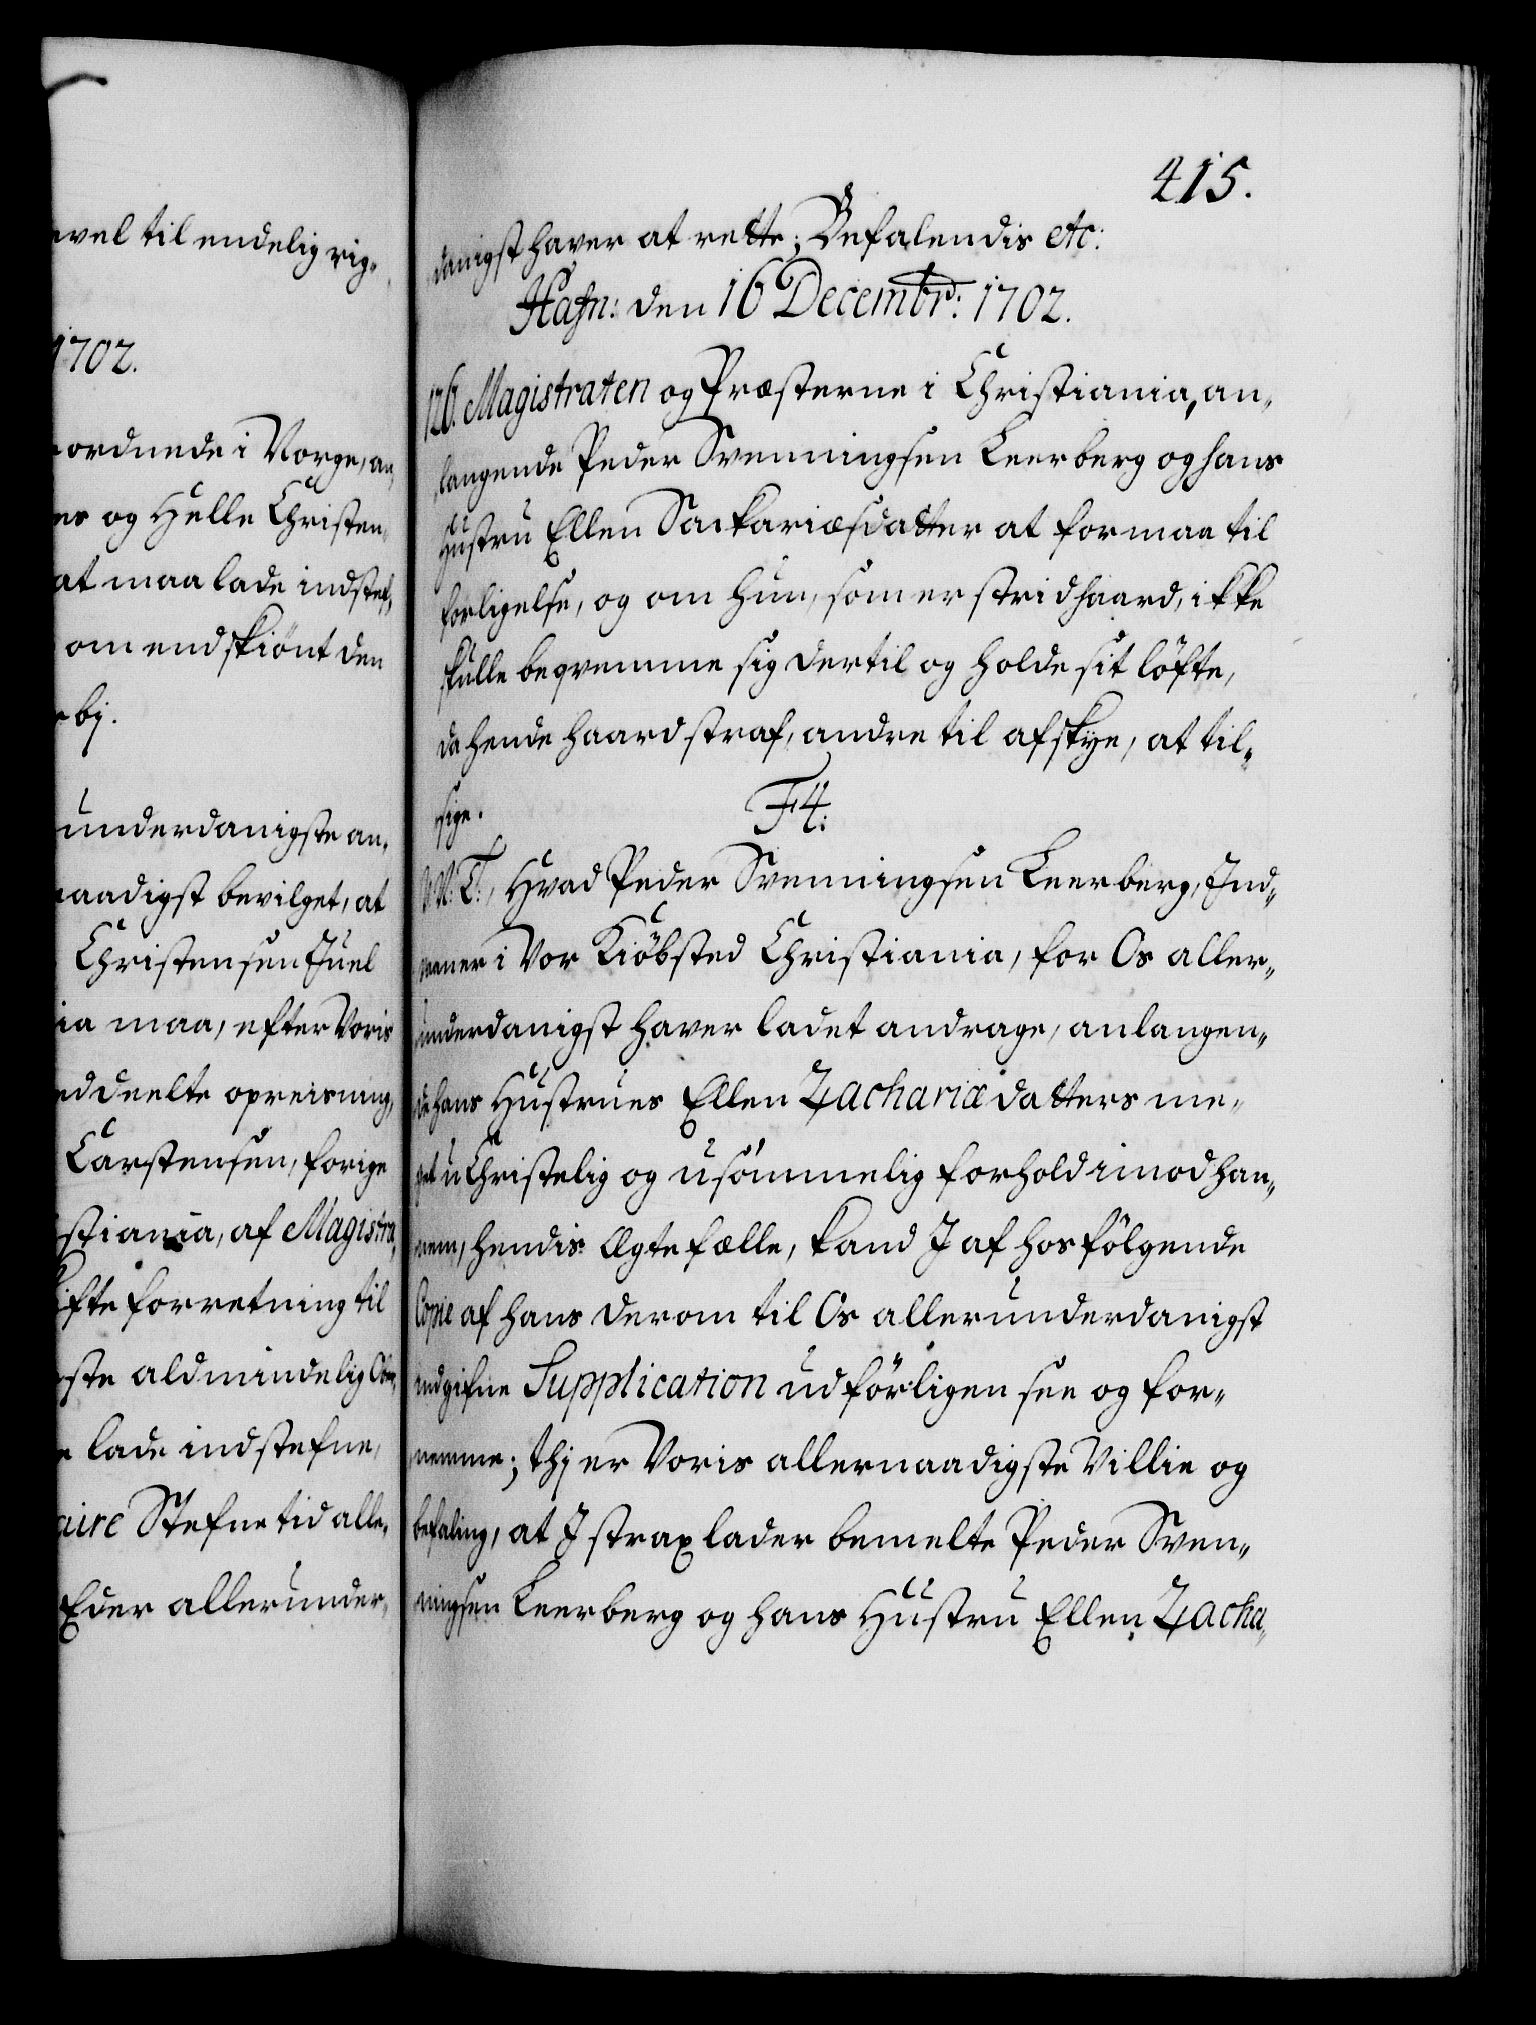 vel til endelig rig-
1702.
ordnede i Norge, an-
es og Helle Christen-
at maa lade indstef-
omendskiönt den
bj.
underdanigste an-
naadigst bevilget, at
Christensen Juel
ia maa, efter Voris
eddeelte opreisning,
Carstensen, forige
stiania, af Magistra-
ifte forretning til
ste aldmindelig
lade indstefne,
aire Stefne tid alle-
Eder allerunder-
415.
danigst haver at rette; Befalendis etc:
Hafn: den 16 Decembr: 1702.
126. Magistraten og Præsterne i Christiania, an-
langende Peder Svenningsen Leerberg og hans
Hustru Ellen Sackariæsdatter at formaa til
forligelse, og om hun, som er stridhaard, ikke
skulle beqvemme sig dertil og holde sit löfte,
da hende haard straf, andre til afskye, at til-
sige.
F4:
V. G. T., Hvad Peder Svenningsen Leerberg, Ind-
vaaner i Vor Kiöbsted Christiania, for Os aller-
underdanigst haver ladet andrage, anlangen-
de hans Hustrues Ellen Zachariædatters me-
get uChristelig og usömmelig forhold imod han-
nem, hendis Ægtefælle, kand I af hosfölgende
Copie af hans derom til Os allerunderdanigst
indgifne Supplication udförligen see og for-
nemme; thj er Voris allernaadigste Villie og
befaling, at I strax lader bemelte Peder Sven-
ningsen Leerberg og hans Hustru Ellen Zacha-